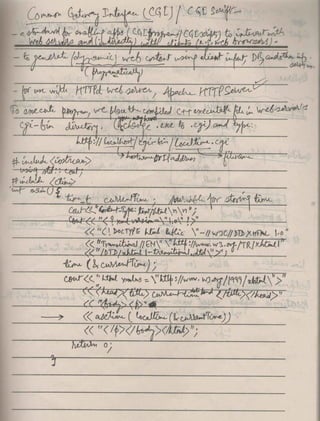 Common Gateway Interface (CGI) / CGI Script
- a standard for enabling apps (CGI program/CGI scripts) to interact with
web servers and (indirectly) with clients (e.g. web browsers).
- to generate (dynamic) web content using client input, DBs and other info
(programmatically)
- for use with HTTPd web server, Apache HTTP Server
To execute program, we place the compiled C++ executable file in web server's
cgi-bin directory. .exe to .cgi and type:
http://localhost/cgi-bin/localtime.cgi
# include <iostream>
using std::cout;
# include <ctime>
int main() {
time_t currentTime; // variable for storing time
cout << "Content-Type: text/html\n\n";
cout << "<?xml version=\"1.0\"?>"
<< "<!DOCTYPE html Public \"-//W3C//DTD XHTML 1.0
<< "Transitional//EN\" \"http://www.w3.org/TR/xhtml1"
<< "/DTD/xhtml1-transitional.dtd\">";
time (& currentTime);
cout << "<html xmlns = \"http://www.w3.org/1999/xhtml\">"
<< "<head><title> Current time </title></head>"
<< "<body><p>"
→ << asctime ( localtime (& currentTime))
<< "</p></body></html>";
return 0;
}